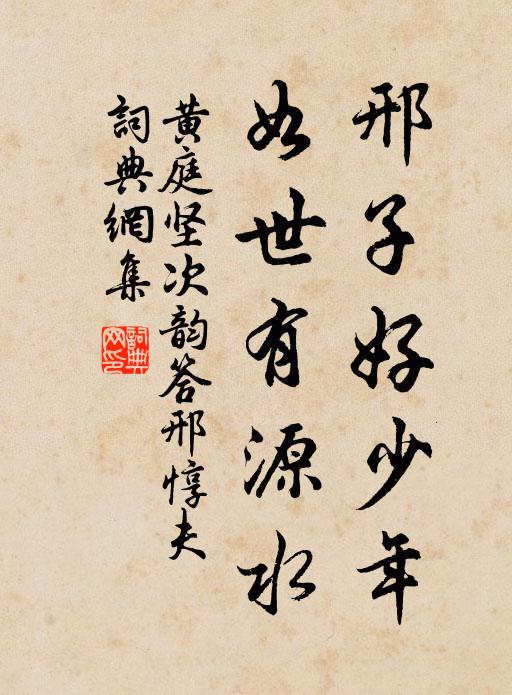 邢子好少年
如世有源水
黄庭坚次韵答邢惇夫
詞典網集
詞典网印